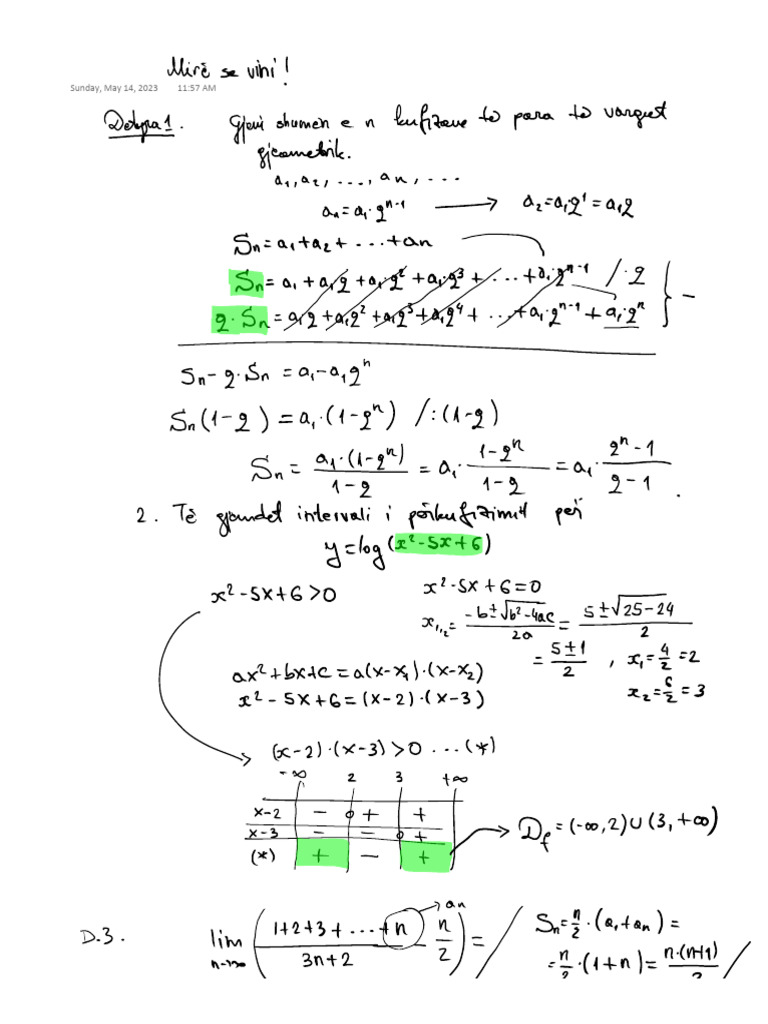 Mirë se vini!
Sunday, May 14, 2023 11:57 AM
Detyra 1. Gjeni shumën e n kufizave të para të vargut
gjeometrik.
a₁, a₂, ..., aₙ, ...
aₙ = a₁·qⁿ⁻¹ → a₂ = a₁q¹ = a₁q
Sₙ = a₁ + a₂ + ... + aₙ
Sₙ = a₁ + a₁q + a₁q² + a₁q³ + ... + a₁·qⁿ⁻¹ /·q
q·Sₙ = a₁q + a₁q² + a₁q³ + a₁q⁴ + ... + a₁·qⁿ⁻¹ + a₁·qⁿ } −
Sₙ − q·Sₙ = a₁ − a₁qⁿ
Sₙ(1−q) = a₁·(1−qⁿ) /:(1−q)
Sₙ = a₁·(1−qⁿ)/(1−q) = a₁·(1−qⁿ)/(1−q) = a₁·(qⁿ−1)/(q−1).
2. Të gjendet intervali i përkufizimit për
y = log(x²−5x+6)
x²−5x+6>0 x²−5x+6=0
x₁,₂ = (−b±√(b²−4ac))/2a = (5±√(25−24))/2
= (5±1)/2, x₁ = 4/2 = 2
x₂ = 6/2 = 3
ax²+bx+c = a(x−x₁)·(x−x₂)
x²−5x+6 = (x−2)·(x−3)
(x−2)·(x−3)>0 ...(*)
−∞ 2 3 +∞
x−2 − + +
x−3 − − +
(*) + − +
D_f = (−∞,2)∪(3,+∞)
D.3. lim n→∞ ((1+2+3+...+n)/(3n+2) − n/2) = / Sₙ = n/2·(a₁+aₙ) =
→ aₙ
= n/2·(1+n) = n·(n+1)/2 /